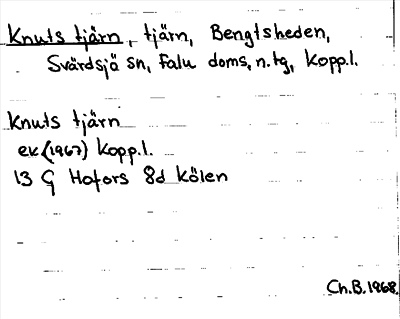 Knuts tjärn, tjärn, Bengtsheden,
Svärdsjä sn, Falu doms, n.tg, Kopp.l.
Knuts tjärn
ek(1967) Kopp.l.
13 G Hofors 8d Kölen
Ch.B.1968.